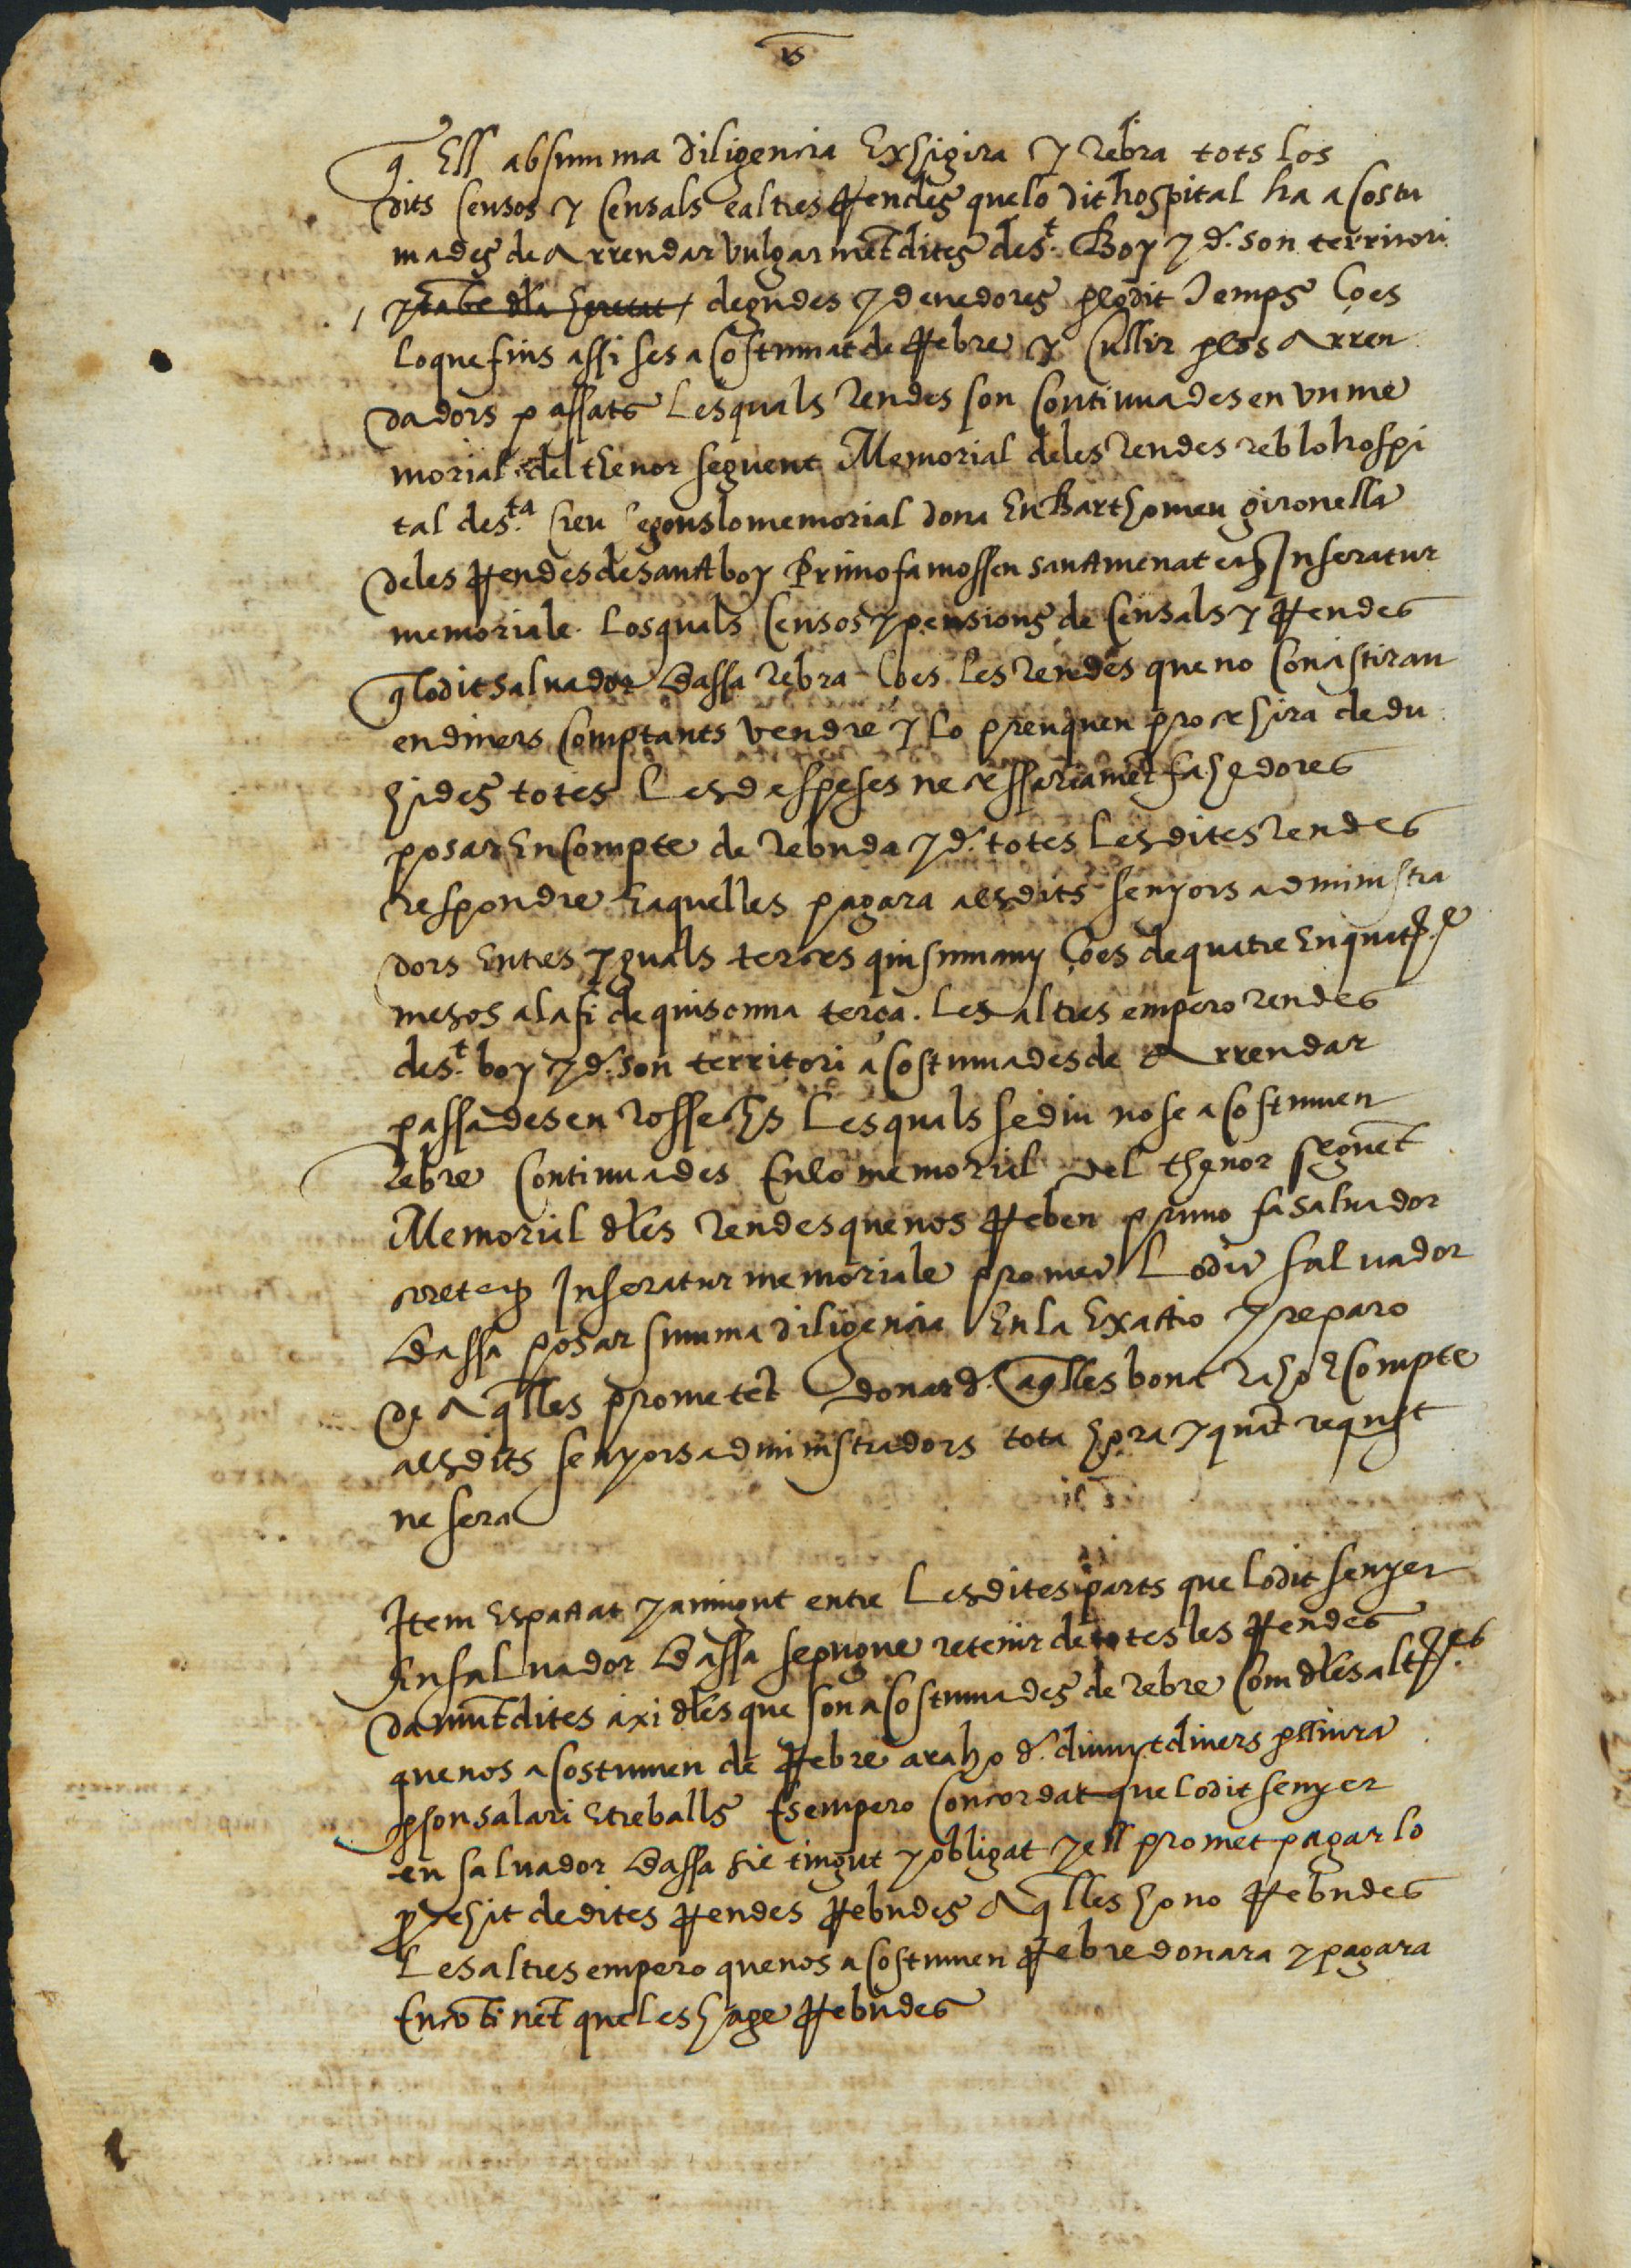 q Ell ab summa diligencia Exhigira y rebra tots los
dits Censos y Censals e altres Rendes que lo dit hospital ha acostu
mades de Arrendar vulgarmẽt dites de s.t Boy y d. son territori
y tãbe dła heretat degudes y devedores ꝑ lo dit temps Ço es
lo que fins assi se s acostumat de Rebre y Cullir ꝑ los Arren
dadors passats Les quals rendes son continuades en un me
morial del thenor seguent Memorial de les rendes reb lo hospi
tal de s.ta Creu segons lo memorial dona En Barthomeu gironella
de les Rendes de sanct boy Primo fa mossen sanctmenat etc Inseratur
memoriale. Los quals Censos y pensions de Censals y Rendes
q lo dit salvador Dassa rebra Ço es les rendes que no Consistiran
en diners Comptants vendre y lo preu quen procehira dedu
hides totes Les despeses necessariamẽt fahedores
posar En Compte de rebuda y d. totes Les dites rendes
respondre E aquelles pagara als dits senyors administra
dors En tres yguals terces quiscun any Ço es de quatre En quatre
mesos a la fi de quiscuna terça. Les altres empero rendes
de s.t boy y d. son territori acostumades de Arrendar
passades en rossechs Les quals se diu no se acostumen
rebre Continuades En lo memorial del thenor seguẽt
Memorial dłes rendes que nos Reben primo fa salvador
etc Inseratur memoriale promet Lo dit salvador
Dassa posar summa diligencia En la Exactio y reparo
de Aqlles prometẽt donar d. aqlles bona raho e Compte
als dits senyors administradors tota hora y quãt request
ne sera
Item Es pactat y avingut entre Les dites parts que lo dit senyer
En salvador Dassa se pugue retenir de totes les Rendes
damũt dites axi dłes que son acostumades de rebre Com dłes altres
que nos acostumen de Rebre a raho d. divuyt diners ꝑ lliura
ꝑ son salari E treballs Es empero Concordat que lo dit senyer
en salvador Dassa sie tingut y obligat y ell promet pagar lo
ꝓcehit de dites Rendes Rebudes Aqlles ho no Rebudes
Les altres empero que nos acostumen Rebre donara y pagara
Encõtinẽt que les hage Rebudes